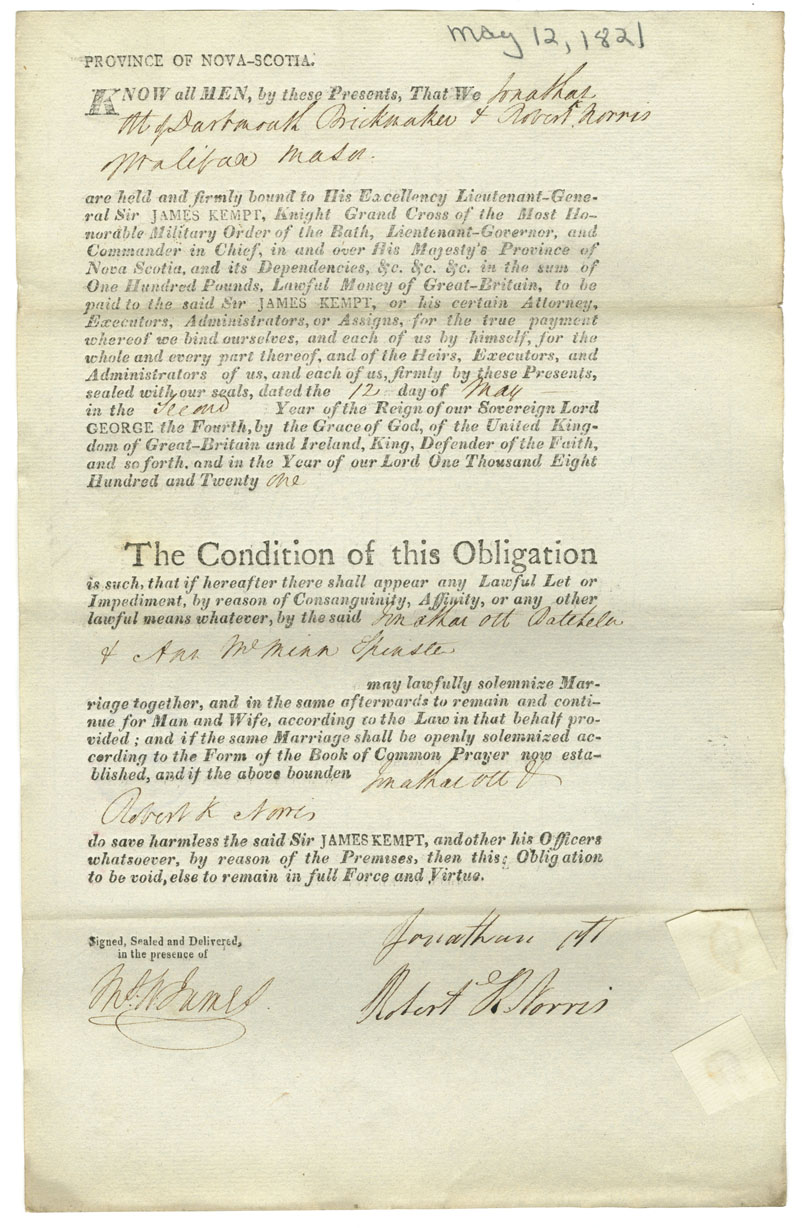 May 12, 1821
PROVINCE OF NOVA-SCOTIA.
KNOW all MEN, by these Presents, That We Jonathan
Ott of Dartmouth Brickmaker & Robert Norris
of Halifax Mason
are held and firmly bound to His Excellency Lieutenant-Gene-
ral Sir JAMES KEMPT, Knight Grand Cross of the Most Ho-
norable Military Order of the Bath, Lieutenant-Governor, and
Commander in Chief, in and over His Majesty's Province of
Nova Scotia, and its Dependencies, &c. &c. &c. in the sum of
One Hundred Pounds, Lawful Money of Great-Britain, to be
paid to the said Sir JAMES KEMPT, or his certain Attorney,
Executors, Administrators, or Assigns, for the true payment
whereof we bind ourselves, and each of us by himself, for the
whole and every part thereof, and of the Heirs, Executors, and
Administrators of us, and each of us, firmly by these Presents,
sealed with our seals, dated the 12 day of May
in the Second Year of the Reign of our Sovereign Lord
GEORGE the Fourth, by the Grace of God, of the United King-
dom of Great-Britain and Ireland, King, Defender of the Faith,
and so forth, and in the Year of our Lord One Thousand Eight
Hundred and Twenty one
The Condition of this Obligation
is such, that if hereafter there shall appear any Lawful Let or
Impediment, by reason of Consanguinity, Affinity, or any other
lawful means whatever, by the said Jonathan Ott Batchelor
& Ann McMinn Spinster
may lawfully solemnize Mar-
riage together, and in the same afterwards to remain and conti-
nue for Man and Wife, according to the Law in that behalf pro-
vided; and if the same Marriage shall be openly solemnized ac-
cording to the Form of the Book of Common Prayer now esta-
blished, and if the above bounden Jonathan Ott &
Robert K Norris
do save harmless the said Sir JAMES KEMPT, and other his Officers
whatsoever, by reason of the Premises, then this Obligation
to be void, else to remain in full Force and Virtue.
Signed, Sealed and Delivered,
in the presence of
Jonathan Ott
James
Robert K Norris